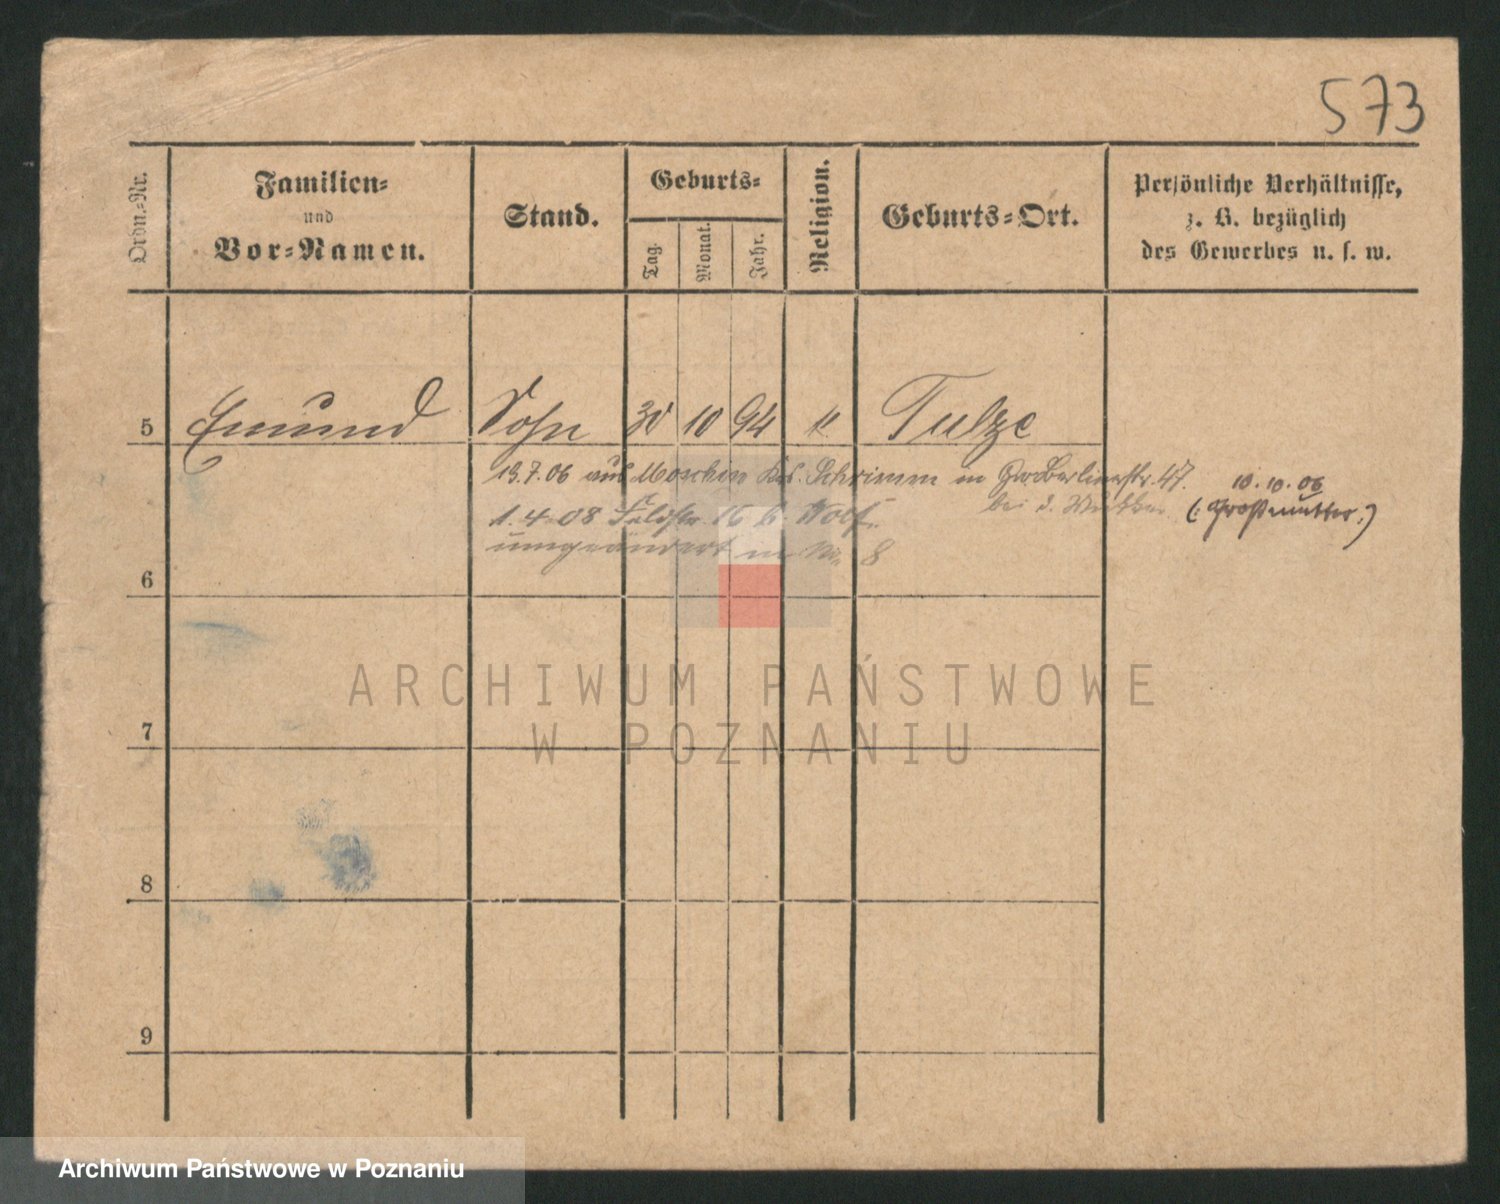 573
Ordn.-Nr.
Familien-
und
Vor-Namen.
Stand.
Geburts-
Tag.
Monat.
Jahr.
Religion.
Geburts-Ort.
Persönliche Verhältnisse,
z. B. bezüglich
des Gewerbes u. s. w.
5 Emund Sohn 30 10 94 k Tulze
19.7.06 aus Moschin Krs. Schrimm in Gr. Berlinerstr. 47. 10.10.06
bei d. (: Großmutter :)
1.4.08 Feldstr. 16 b. Wolf
umgeändert in No. 8
6
7
8
9
ARCHIWUM PAŃSTWOWE
W POZNANIU
Archiwum Państwowe w Poznaniu